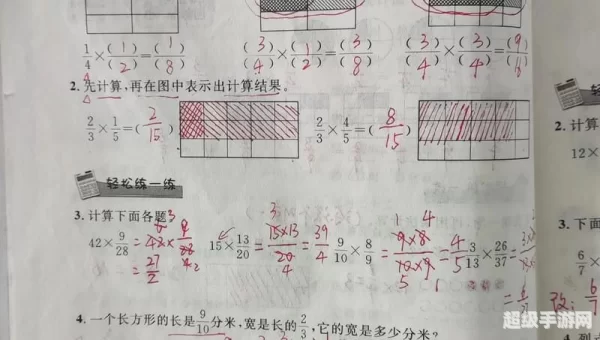 1/4×(1/2)=(1/8) (3/4)×(1/2)=(3/8) (3/4)×(3/4)=(9/16)
2.先计算,再在图中表示出计算结果。
2/3×1/5=(2/15) 2/3×4/5=(8/15)
轻松练一练
3.计算下面各题
42×9/28 15×13/20=15×13/20=39/4 9/10×8/9=9×8/10×9=4/5 3/13×26/37
=27/2
4.一个长方形的长是9/10分米,宽是长的2/3,它的宽是多少分米?
2.计算
12×
3.下面
6/7×
改:6/7
超级手游网